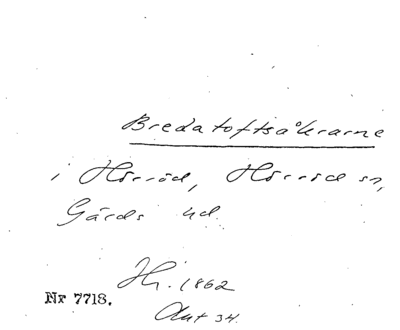 Bredatoftsåkrarne
i Hörröd, Hörröd sn,
Gärds hd.
Hj. 1862
Akt 34.
Nr 7718.